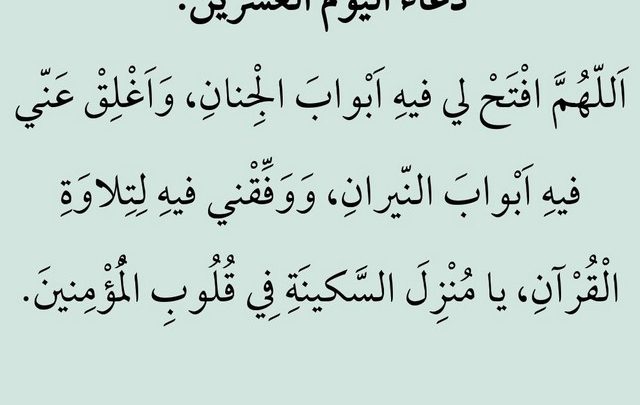 دعاء اليوم العشرين:
اَللّهُمَّ افْتَحْ لي فيهِ اَبْوابَ الْجِنانِ، وَاَغْلِقْ عَنّي
فيهِ اَبْوابَ النّيرانِ، وَوَفِّقْني فيهِ لِتِلاوَةِ
الْقُرْآنِ، يا مُنْزِلَ السَّكينَةِ فِي قُلُوبِ الْمُؤْمِنينَ.